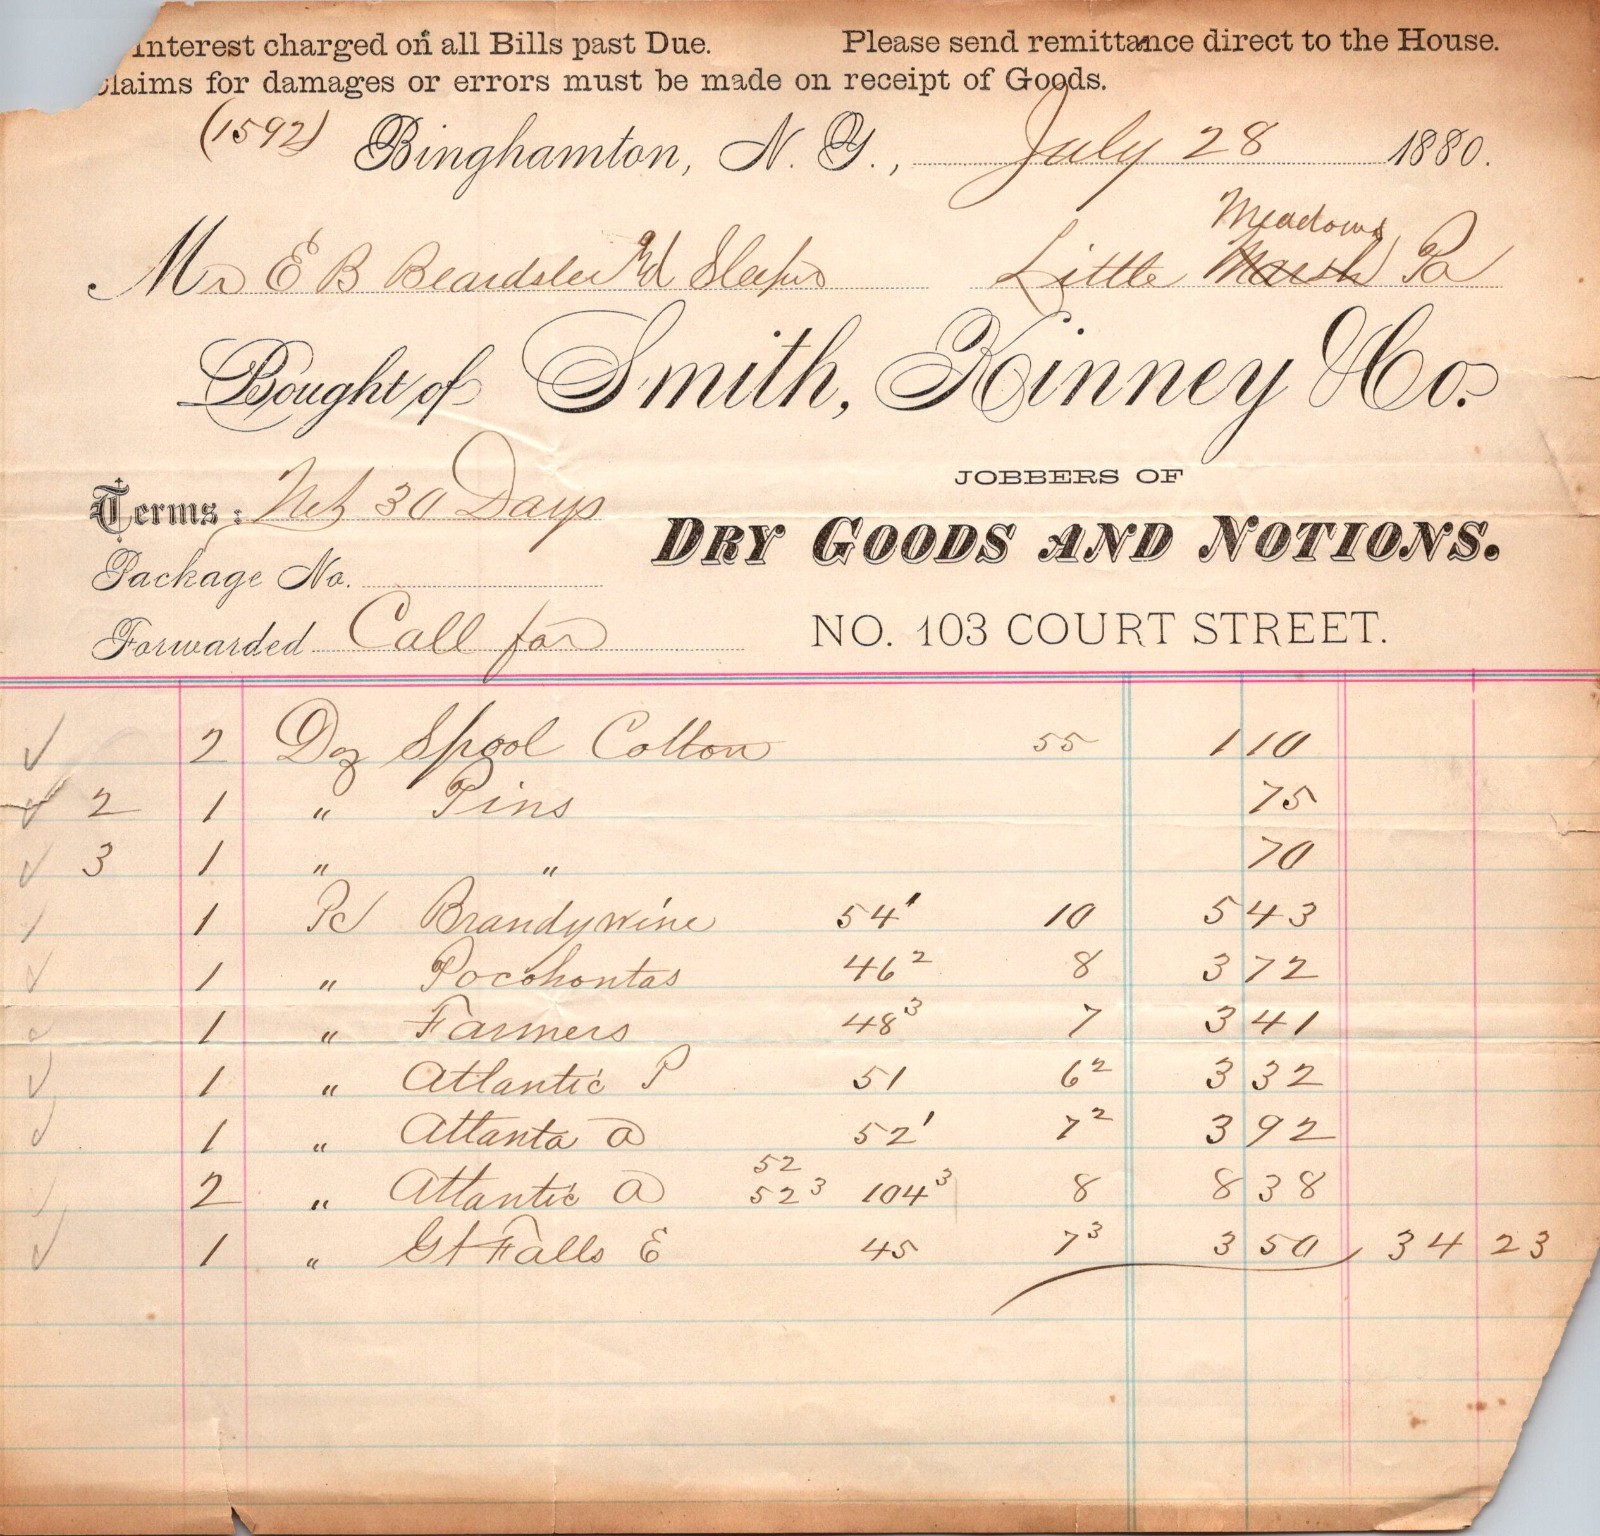 Interest charged on all Bills past Due. Please send remittance direct to the House.
laims for damages or errors must be made on receipt of Goods.
(1592) Binghamton, N. Y., July 28 1880.
Meadows
Mr E B Beardslee Little Marsh Pa
Bought of Smith, Kinney & Co.
JOBBERS OF
Terms: Net 30 Days
DRY GOODS AND NOTIONS.
Package No.
Forwarded Call for
NO. 103 COURT STREET.
2 Doz Spool Cotton 55 1 10
2 1 " Pins 75
3 1 " " 70
1 Pc Brandywine 54' 10 5 43
1 " Pocohontas 46² 8 3 72
1 " Farmers 48³ 7 3 41
1 " Atlantic P 51 6² 3 32
1 " Atlanta A 52' 7² 3 92
52
2 " Atlantic A 52³ 104³ 8 8 38
1 " Gt Falls E 45 7³ 3 50 34 23